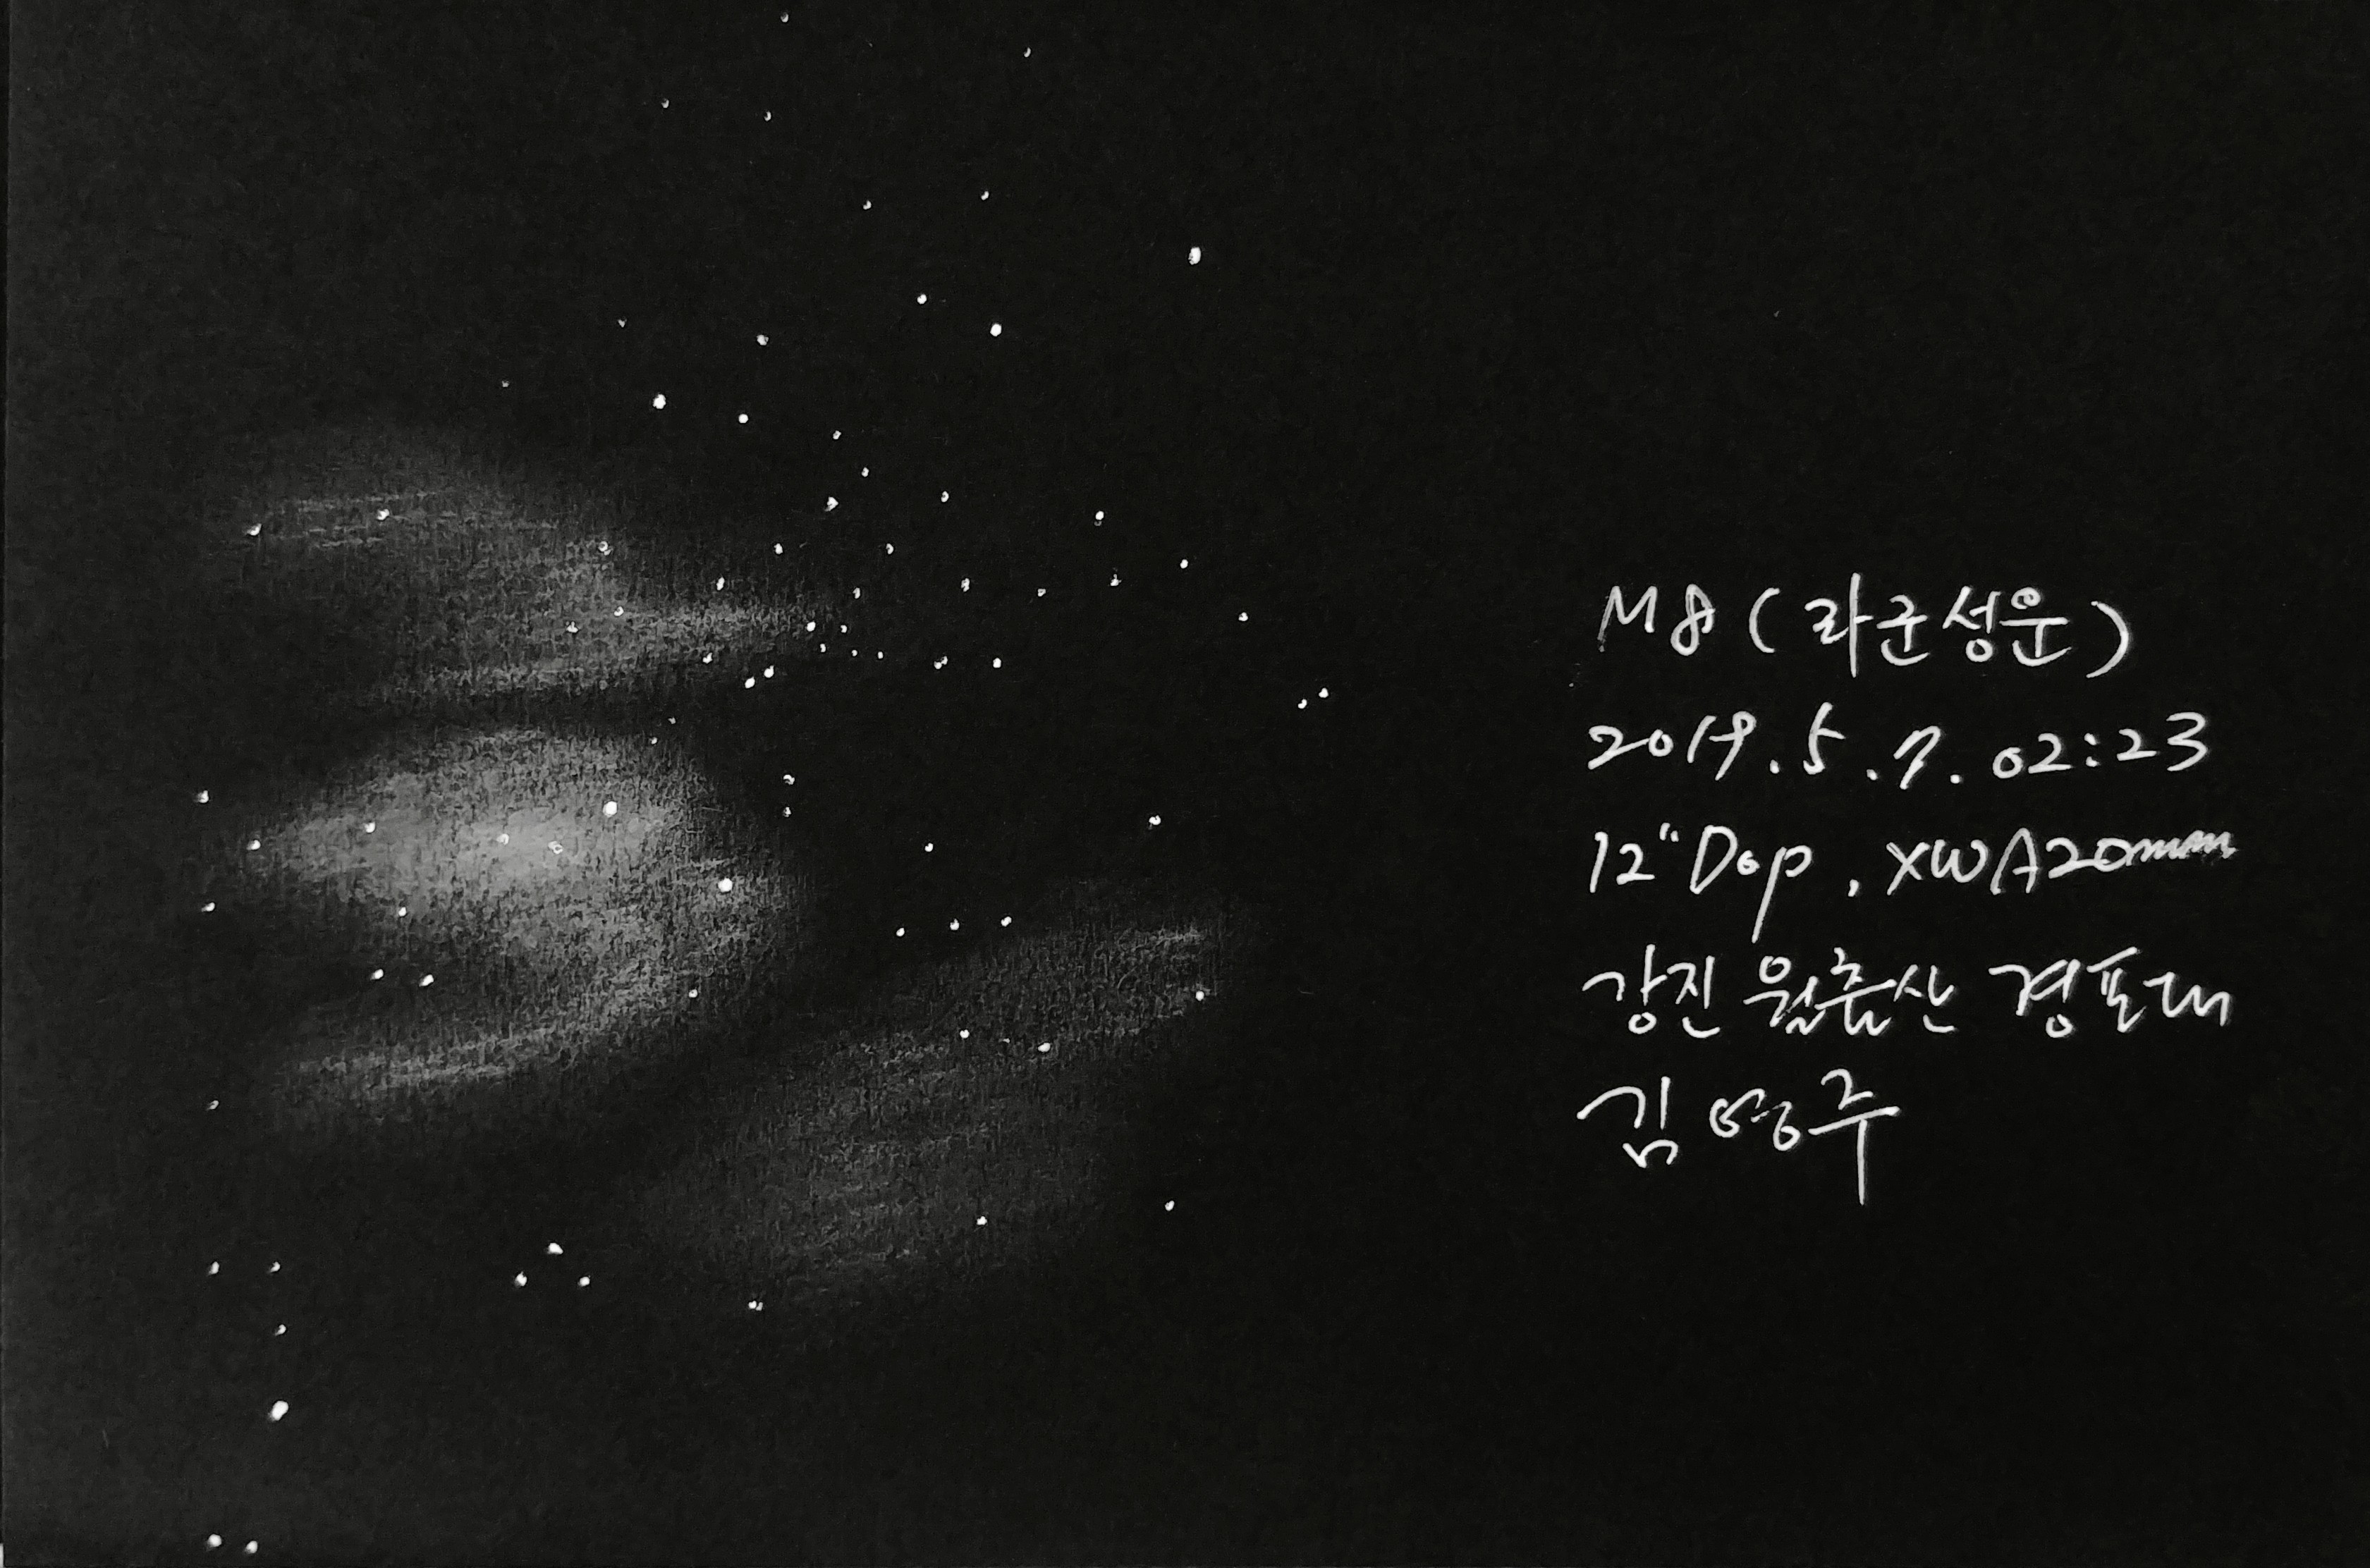 M8 (라군성운)
2019.5.7. 02:23
12" Dop, XWA20mm
강진 월출산 경포대
김영주